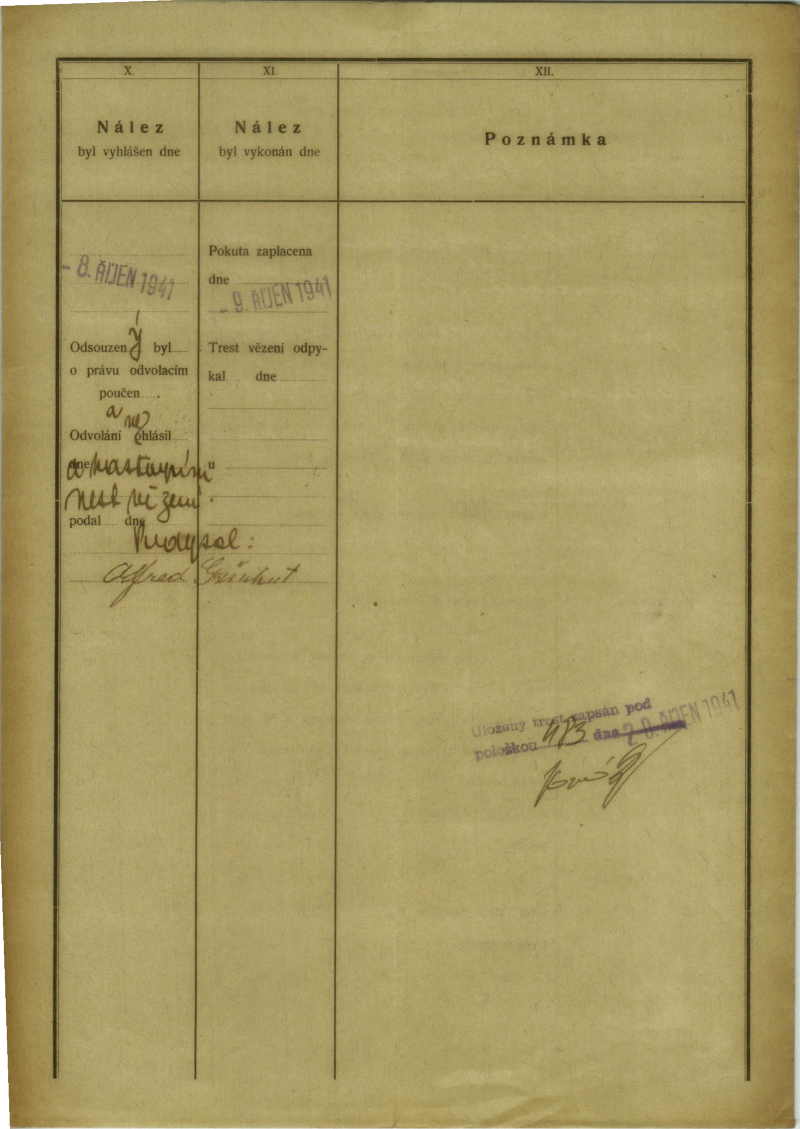 X.
Nález
byl vyhlášen dne
XI.
Nález
byl vykonán dne
XII.
Poznámka
- 8. ŘÍJEN 1941
Odsouzený byl
o právu odvolacím
poučen .
a ne
Odvolání ohlásil
dne
trest vězení.
podal dne
Podepsal:
Alfred
Pokuta zaplacena
dne
- 9. ŘÍJEN 1941
Trest vězení odpy-
kal dne
Uložený trest zapsán pod
položkou 483 dne 20. ŘÍJEN 1941